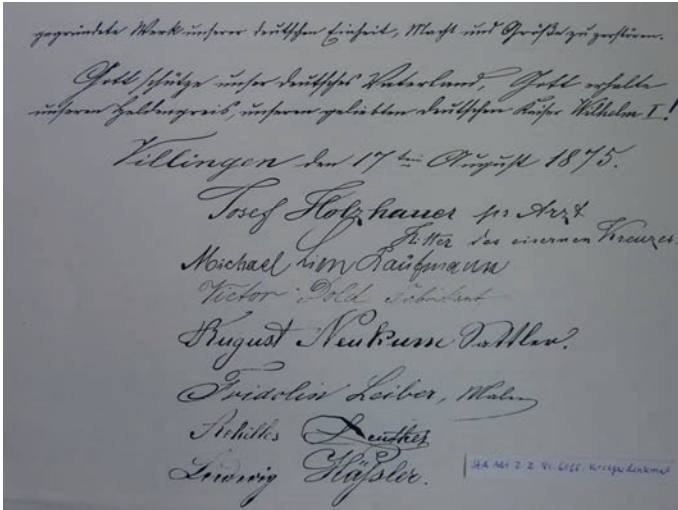 gegründete Werk unserer deutschen Einheit, Macht und Größe zu zerstören.
Gott schütze unser deutsches Vaterland, Gott erhalte
unseren Heldengreis, unseren geliebten deutschen Kaiser Wilhelm I!
Villingen den 17ten August 1875.
Josef Holzhauer pr Arzt
Ritter des eisernen Kreuzes.
Michael Kaufmann
Victor Dold Fabrikant
August Neukum Sattler.
Fridolin Leiber, Maler
Achilles
Ludwig Häßler.
StA Kriegerdenkmal